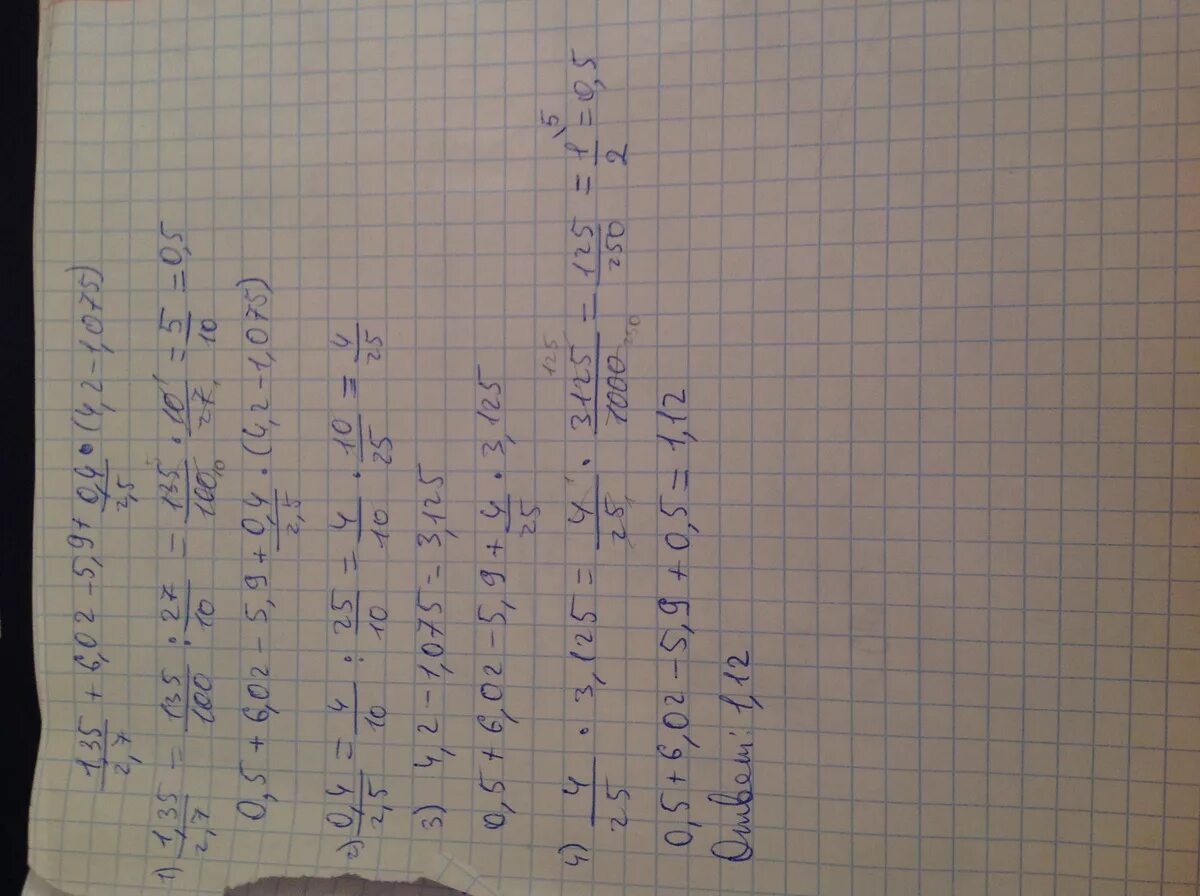 1,35/2,7 + 6,02 - 5,9 + 0,4/2,5 • (4,2 - 1,075)
1) 1,35/2,7 = 135/100 : 27/10 = 135/100 · 10/27 = 5/10 = 0,5
0,5 + 6,02 - 5,9 + 0,4/2,5 · (4,2 - 1,075)
2) 0,4/2,5 = 4/10 : 25/10 = 4/10 · 10/25 = 4/25
3) 4,2 - 1,075 = 3,125
0,5 + 6,02 - 5,9 + 4/25 · 3,125
4) 4/25 · 3,125 = 4/25 · 3125/1000 = 125/250 = 1\5/2 = 0,5
0,5 + 6,02 - 5,9 + 0,5 = 1,12
Ответ: 1,12